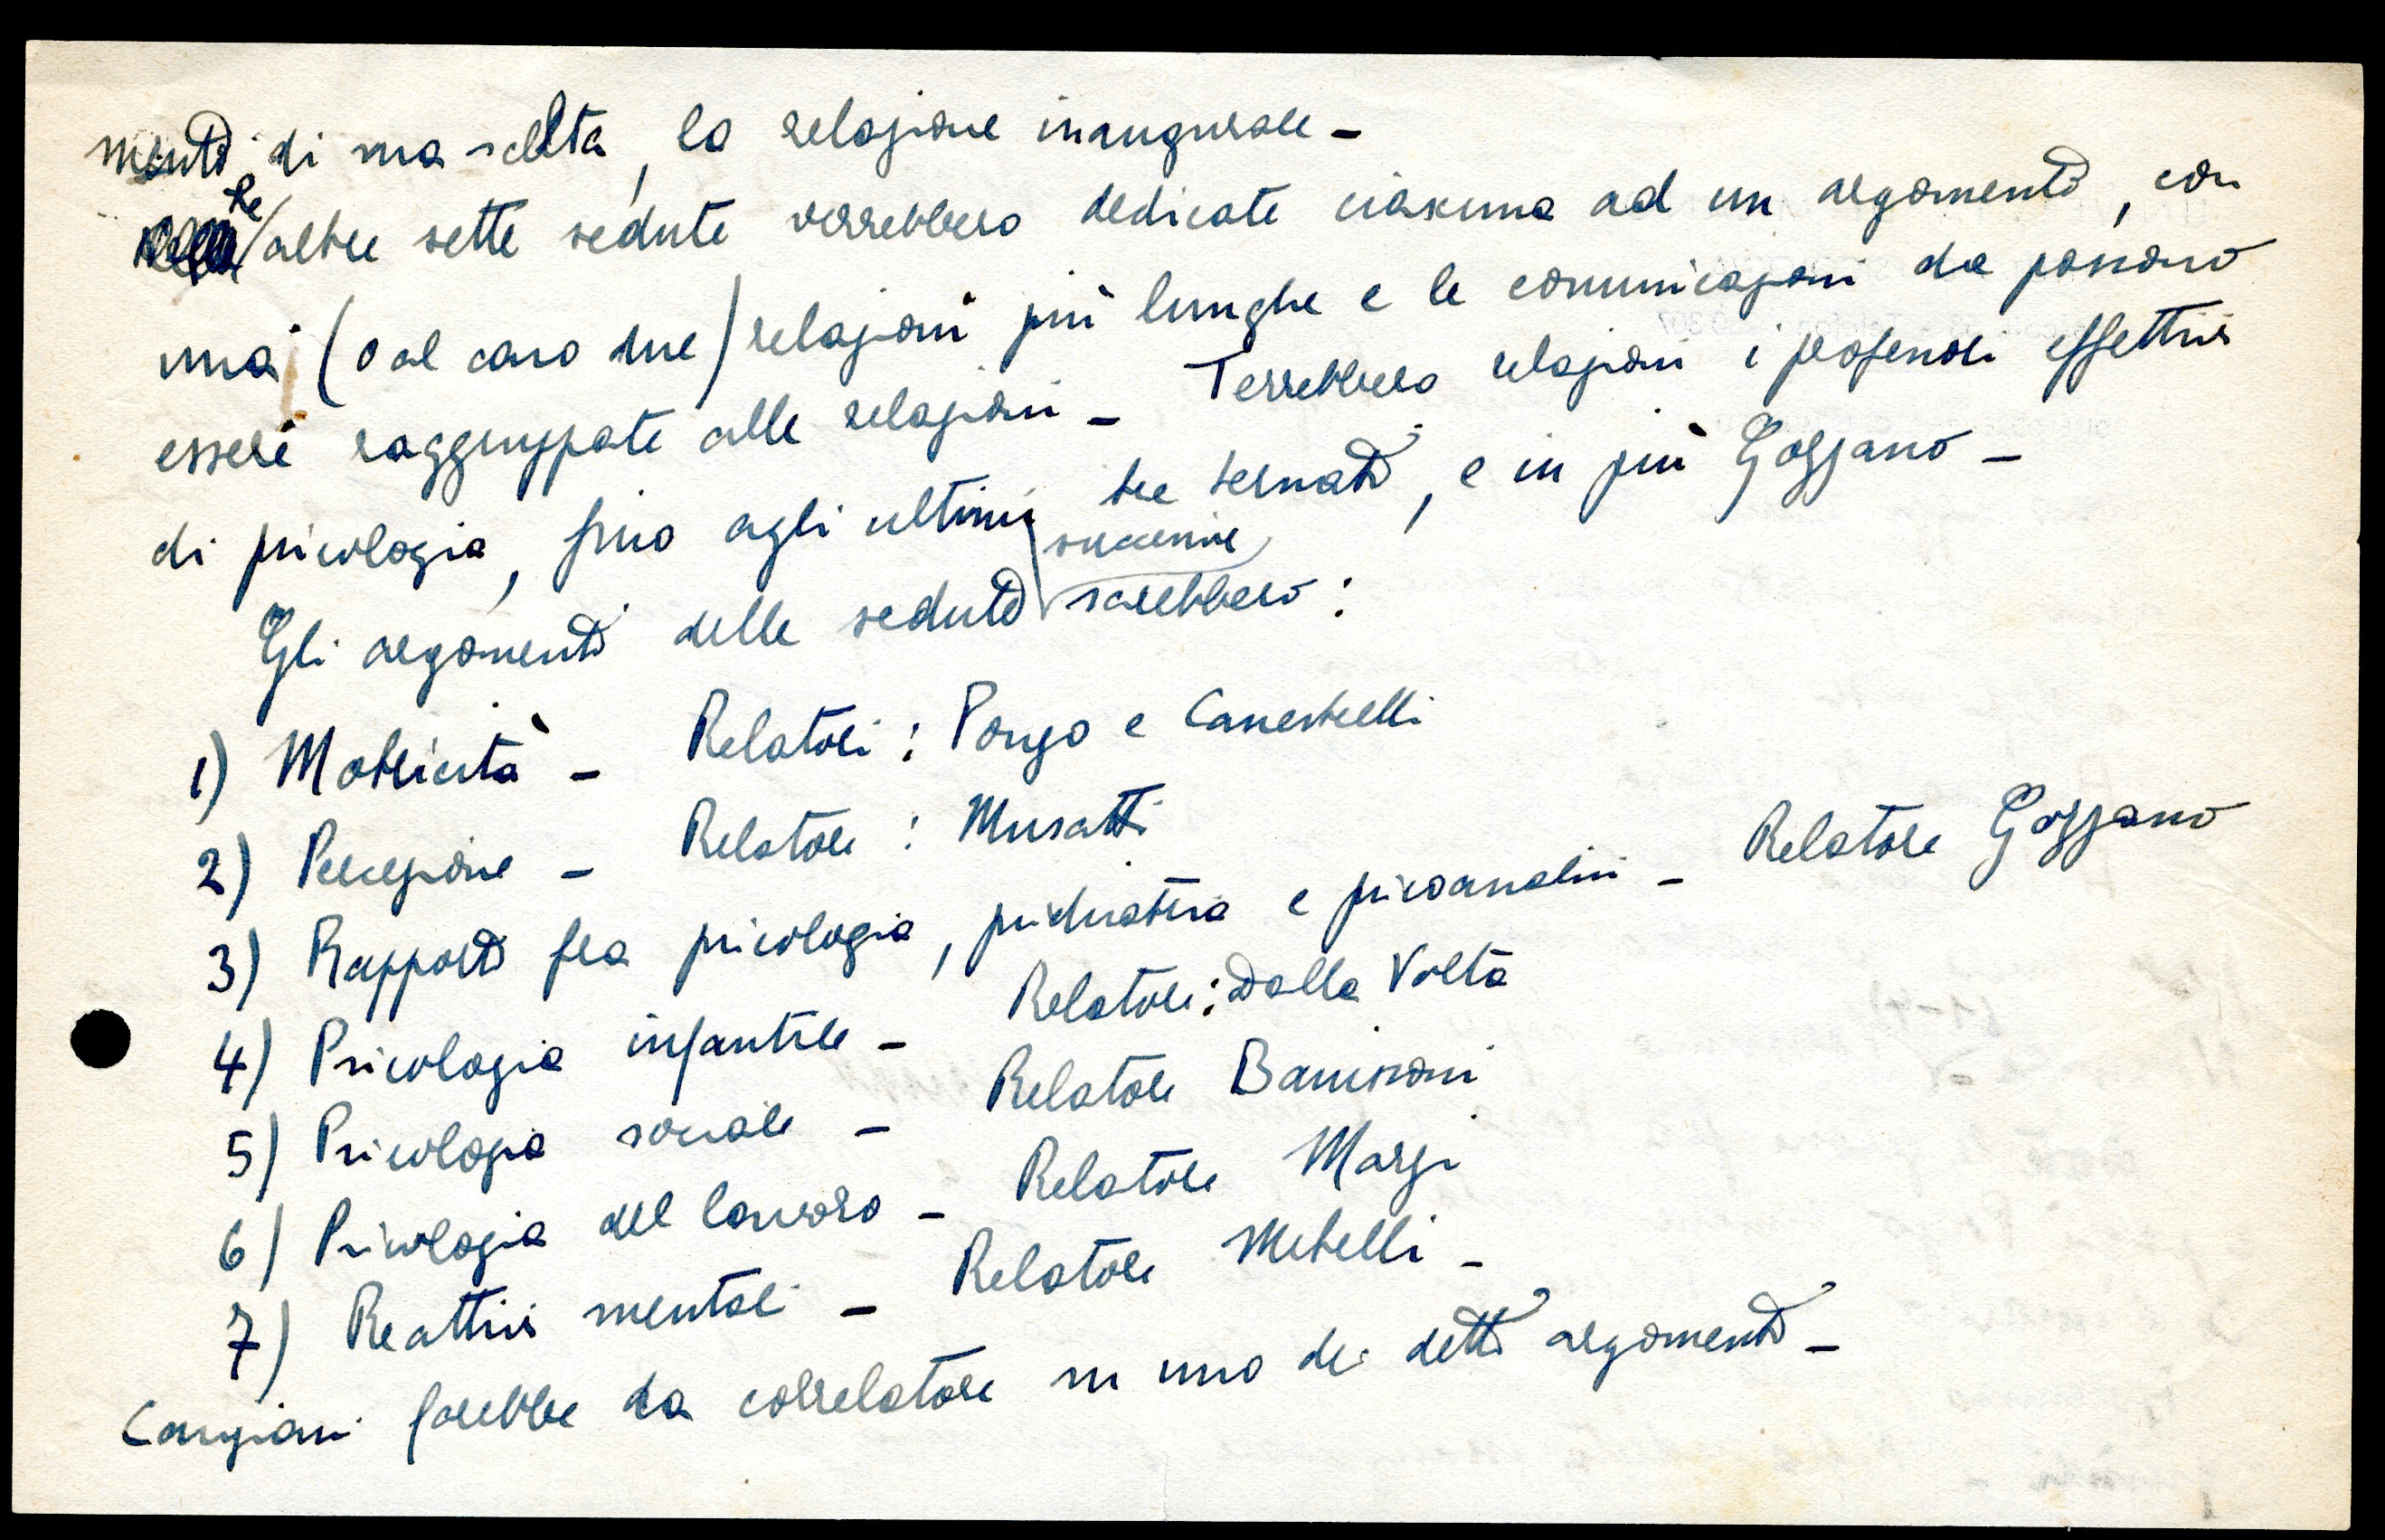 mento di sua scelta, la relazione inaugurale –
le altre sette sedute verrebbero dedicate ciascuna ad un argomento, con
una (o al caso due) relazioni più lunghe e le comunicazioni che possono
essere raggruppate alle relazioni – Terrebbero relazioni i professori effettivi
di psicologia, fino agli ultimi tre ternati, e in più Gozzano –
Gli argomenti delle sedute successive sarebbero:
1) Motricità – Relatori: Ponzo e Canestrelli
2) Percezione – Relatore: Musatti
3) Rapporti fra psicologia, psichiatria e psicoanalisi – Relatore Gozzano
4) Psicologia infantile – Relatore: Dalla Volta
5) Psicologia sociale – Relatore Banissoni
6) Psicologia del lavoro – Relatore Marzi
7) Reattivi mentali – Relatore Metelli –
Canziani farebbe da correlatore su uno dei detti argomenti –